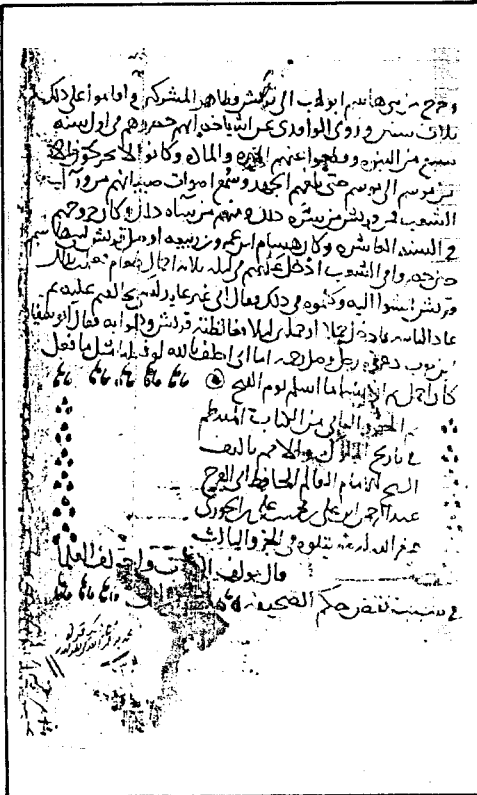 وخرج من بنى هاشم ابو لهب الى قريش وظاهر المشركين واقاموا على ذلك
ثلاث سنين وروى الواقدى عن اشياخه انهم حصروهم فى اول سنه
سبع من النبوه وقطعوا عنهم الميره والماده وكانوا لا يخرجون الا
من موسم الى موسم حتى بلغهم الجهد وسمع اصوات صبيانهم من ورآء
الشعب فمن قريش من سره ذلك ومنهم من ساه ذلك وكان خروجهم
فى السنه العاشره وكان هشام ابن عمرو بن ربيعه اوصل قريش لبنى هاشم
حين حصروا فى الشعب ادخل عليهم فى ليله ثلاثه احمال طعام فعلمت بذلك
قريش فمشوا اليه وكلموه فى ذلك فقال انى غير عايد لشى خالفكم عليه ثم
عاد الثانيه فادخل حملا او حملين ليلا فغالظته قريش وهموا به فقال ابو سفيان
ابن حرب دعوه رجل وصل رحمه اما انى احلف بالله لو فعلنا مثل ما فعل
كان اجمل بنا ثم ان هشاما اسلم يوم الفتح
من الكتاب المنتظم
فى تاريخ الملوك والامم تاليف
الشيخ الامام العالم الحافظ ابى الفرج
عبد الرحمن ابن على بن محمد بن على بن الجوزى
غفر الله له يتلوه فى الجزو الثالث
قال مولف الكتاب واختلف العلما
فى سبب نقض حكم الصحيفه